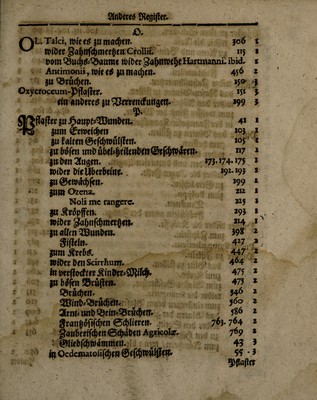 Anderes Register.
O.
OL. Talci, wie es zu machen. 306 1
wider Zahnschmertzen Crollii. 115 1
vom Buchs-Baume wider Zahnwehe Hartmanni. ibid. 1
Antimonii, wie es zu machen. 456 2
zu Brüchen. 150 3
Oxycroceum-Pflaster. 151 3
ein anderes zu Verrenckungen. 199 3
P.
Pflaster zu Haupt-Wunden. 41 1
zum Erweichen 103 1
zu kalten Geschwülsten. 105 1
zu bösen und übel-heilenden Geschwären. 117 1
zu den Augen. 173. 174. 175 1
wider die Uberbeine. 192. 193 1
zu Gewächsen. 199 1
zum Ozena. 212 1
Noli me tangere. 225 1
zu Kröpffen. 293 1
wider Zahnschmertzen. 214 1
zu allen Wunden. 398 2
Fisteln. 427 2
zum Krebs. 447 2
wider den Scirrhum. 464 2
in verstockter Kinder-Milch. 475 2
zu bösen Brüsten. 473 2
Brüchen. 546 2
Wind-Brüchen. 560 2
Arm- und Bein-Brüchen. 586 2
Frantzösischen Schlieren. 763. 764 2
Zauberischen Schäden Agricolæ. 769 2
Gliedschwämmen. 43 3
in Oedematosischen Geschwülsten. 55 3
Pflaster